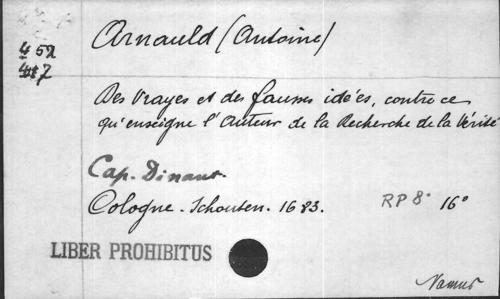 Arnauld (Antoine)
452
447
Des Vrayes et des fausses idées, contre ce
qu'enseigne l'Auteur de la Recherche de la Vérité
Cap. Dinant.
Cologne. Schouten. 1683. RP 8° 16°
LIBER PROHIBITUS
Namur